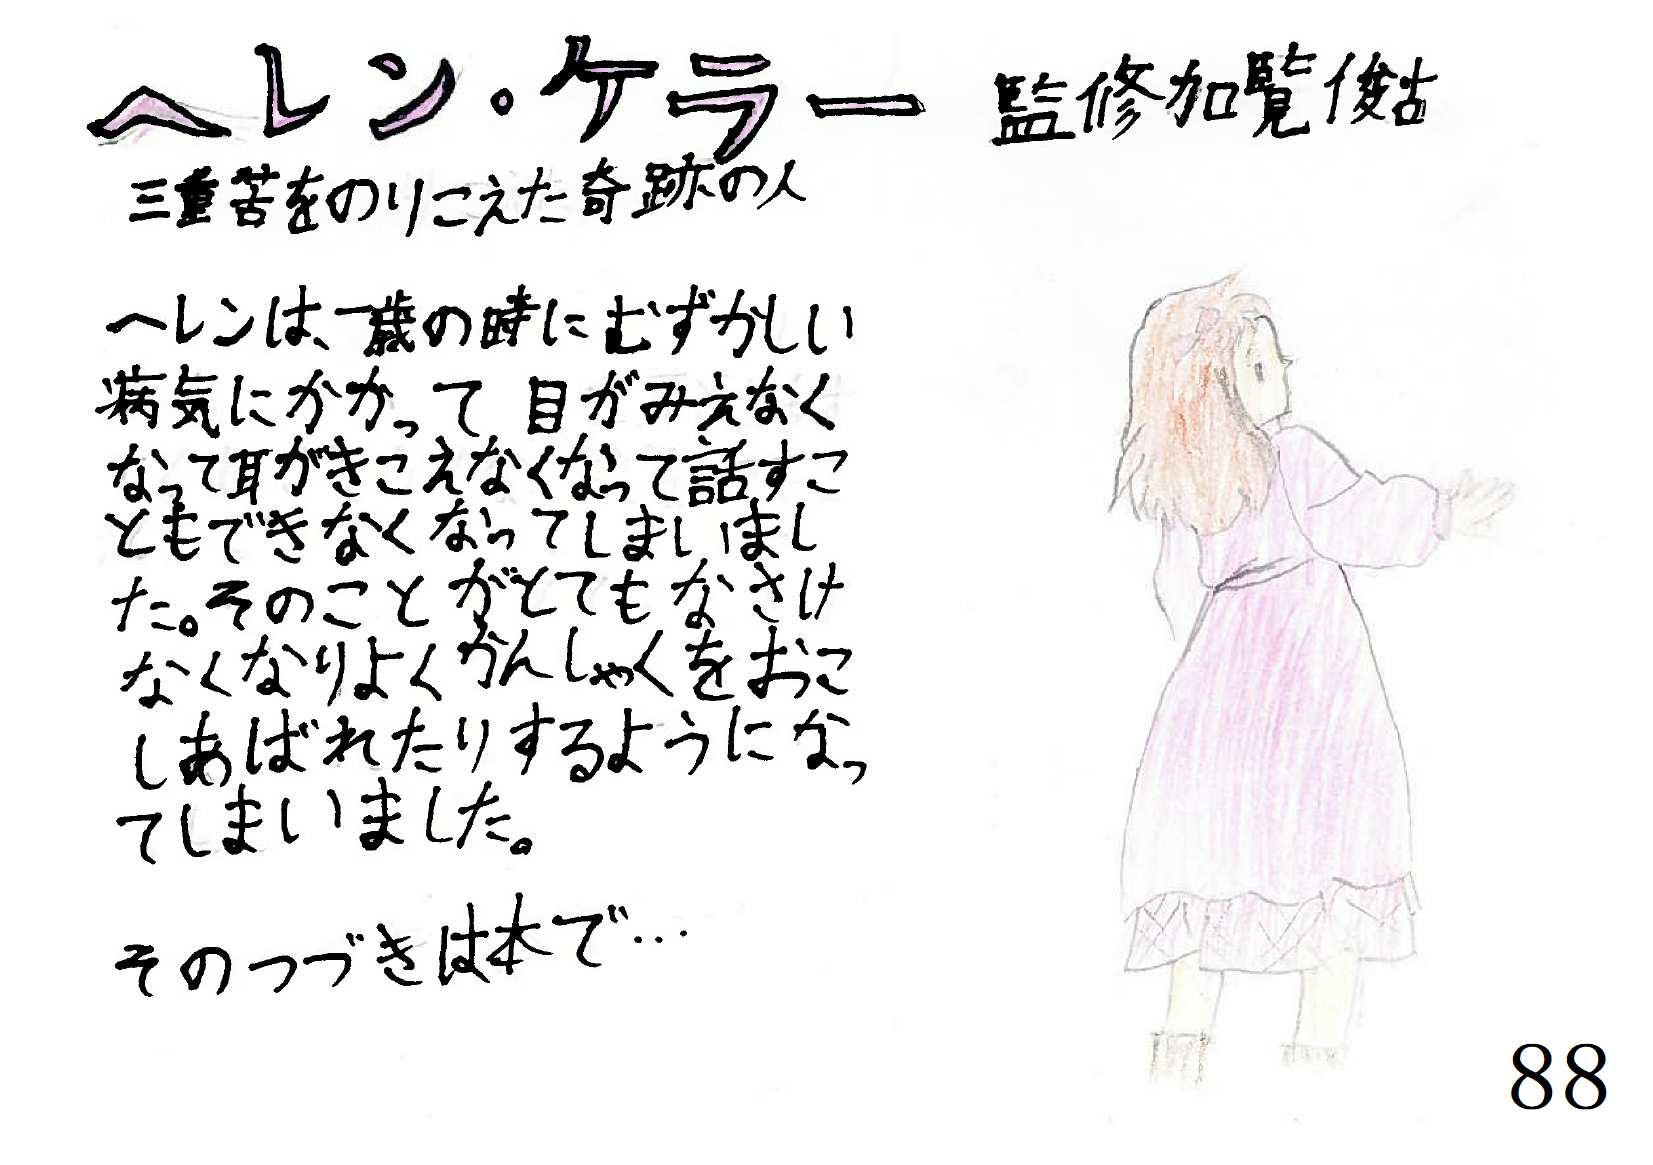 ヘレン・ケラー 監修加覧俊吉
三重苦をのりこえた奇跡の人
ヘレンは、一歳の時にむずかしい
病気にかかって目がみえなく
なって耳がきこえなくなって話すこ
ともできなくなってしまいまし
た。そのことがとてもなさけ
なくなりよくかんしゃくをおこ
しあばれたりするようになっ
てしまいました。
そのつづきは本で…
88